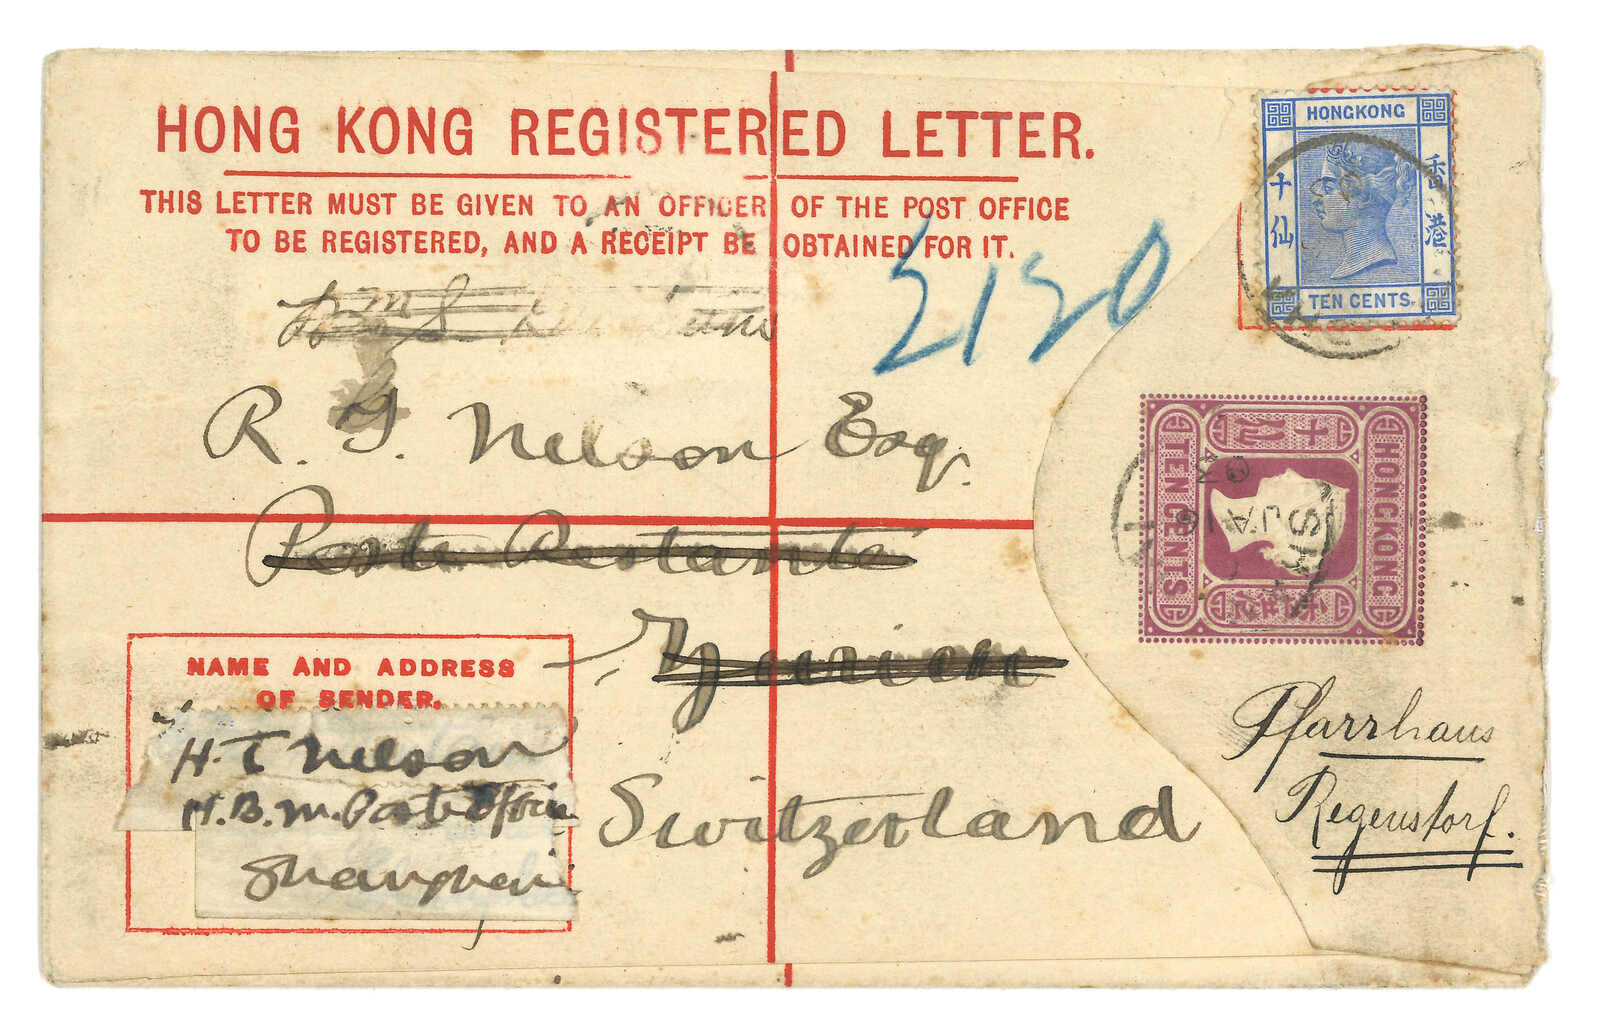 HONG KONG REGISTERED LETTER.
THIS LETTER MUST BE GIVEN TO AN OFFICER OF THE POST OFFICE
TO BE REGISTERED, AND A RECEIPT BE OBTAINED FOR IT.
HONGKONG
十仙
香港
TEN CENTS
R. G. Nelson Esq.
Poste Restante
Zurich
Switzerland
NAME AND ADDRESS
OF SENDER.
H. T Nelson
H.B.M. Post Office
Shanghai
HONGKONG
TEN CENTS
JA 16
Pfarrhaus
Regenstorf.